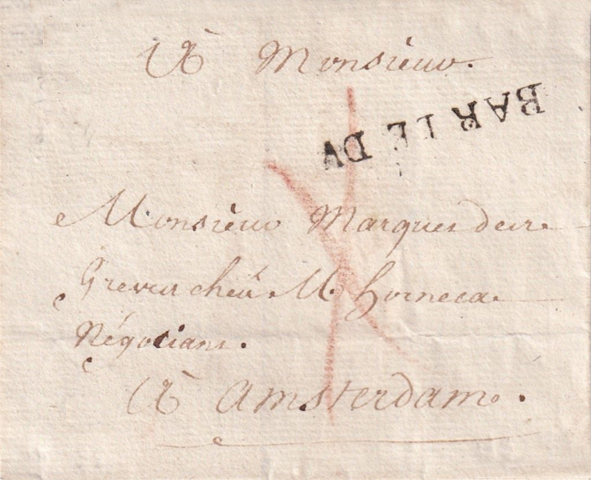 A Monsieur.
BAR LE DV
Monsieur Marquis de
Graveur chés M. Horneca
Négociant.
A Amsterdam.